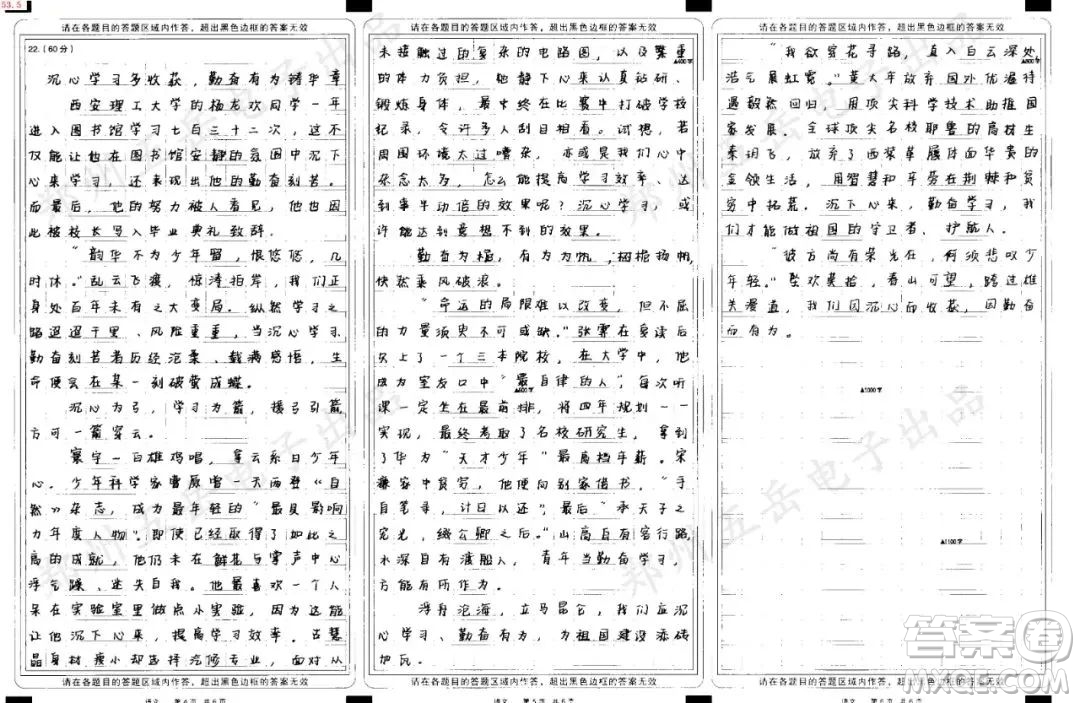 53.5
请在各题目的答题区域内作答，超出黑色边框的答案无效
22.（60分）
沉心学习多收获，勤奋有为铸华章
西安理工大学的杨龙欢同学一年
进入图书馆学习七百三十二次，这不
仅能让他在图书馆安静的氛围中沉下
心来学习，还表现出他的勤奋刻苦。
而最后，他的努力被人看见，他也因
此被校长写入毕业典礼致辞。
“韶华不为少年留，恨悠悠，几
时休。”乱云飞渡，惊涛拍岸，我们正
身处百年未有之大变局。纵然学习之
路迢迢千里、风险重重，当沉心学习、
勤奋刻苦者历经沧桑、载满感悟，生
命便会在某一刻破茧成蝶。
沉心为弓，学习为箭，援弓引箭
方可一箭穿云。
寰宇一白雄鸡唱，拿云系日少年
心。少年科学家曹原曾一天两登《自
然》杂志，成为最年轻的“最具影响
力年度人物”。即便已经取得了如此之
高的成就，他仍未在鲜花与掌声中心
浮气躁、迷失自我。他最喜欢一个人
呆在实验室里做点小实验，因为这能
让他沉下心来，提高学习效率。古慧
晶身材瘦小却选择汽修专业，面对从
请在各题目的答题区域内作答，超出黑色边框的答案无效
语文 第4页 共6页
请在各题目的答题区域内作答，超出黑色边框的答案无效
未接触过的复杂的电路图，以及繁重
▲400字
的体力负担，她静下心来认真钻研、
锻炼身体，最终在比赛中打破学校
纪录，令许多人刮目相看。试想，若
周围环境太过嘈杂，亦或是我们心中
杂念太多，怎么能提高学习效率、达
到事半功倍的效果呢？沉心学习，或
许能达到意想不到的效果。
勤奋为桅，有为为帆，扬桅扬帆
快然乘风破浪。
“命运的局限难以改变，但不屈
的力量须臾不可或缺。”张霁在复读后
欠上了一个三本院校，在大学中，他
成为室友口中“最自律的人”，每次听
▲600字
课一定坐在最前排，将四年规划一一
实现，最终考取了名校研究生，拿到
了华为“天才少年”最高档年薪。宋
濂家中贫穷，他便向别家借书，“手
自笔录，计日以还”，最后“承天子之
宠光，缀公卿之后。”山高自有客行路，
水深自有渡船人，青年当勤奋学习，
方能有所作为。
浮舟沧海，立马昆仑，我们应沉
心学习、勤奋有为，为祖国建设添砖
加瓦。
请在各题目的答题区域内作答，超出黑色边框的答案无效
语文 第5页 共6页
请在各题目的答题区域内作答，超出黑色边框的答案无效
“我欲穿花寻路，直入白云深处
▲800字
浩气展虹霓。”黄大年放弃国外优渥待
遇毅然回归，用顶尖科学技术助祖国
家发展。全球顶尖名校耶鲁的高材生
秦玥飞，放弃了西装革履体面华贵的
金领生活，用智慧和辛劳在荆棘和贫
穷中拓荒。沉下心来，勤奋学习，我
们才能做祖国的守卫者、护航人。
“彼方尚有荣光在，何须悲叹少
年轻。”堑欢莫拾，春山可望，跨过雄
关漫道，我们因沉心而收获，因勤奋
而有为。
▲1000字
▲1100字
请在各题目的答题区域内作答，超出黑色边框的答案无效
语文 第6页 共6页
郑州五岳电子出品
郑州五岳电子出品
郑州五岳电子出品
答案圈
MXQE.COM